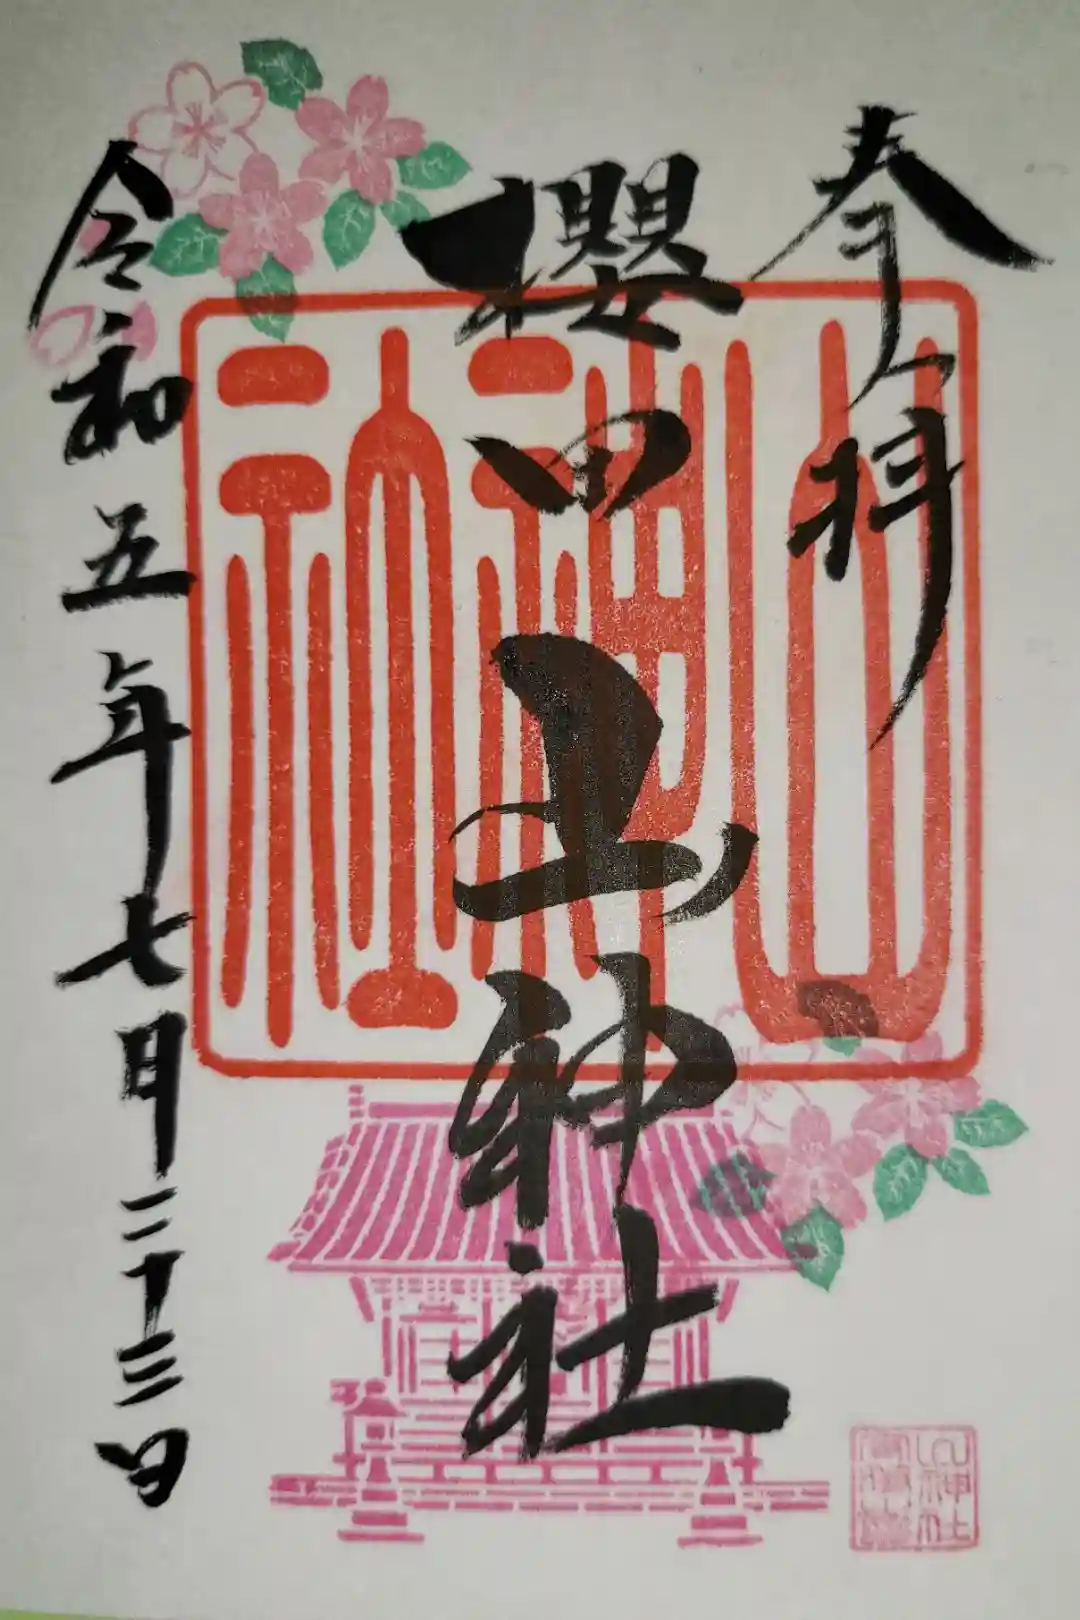 奉拝
櫻田山神社
山神社
令和五年七月二十三日